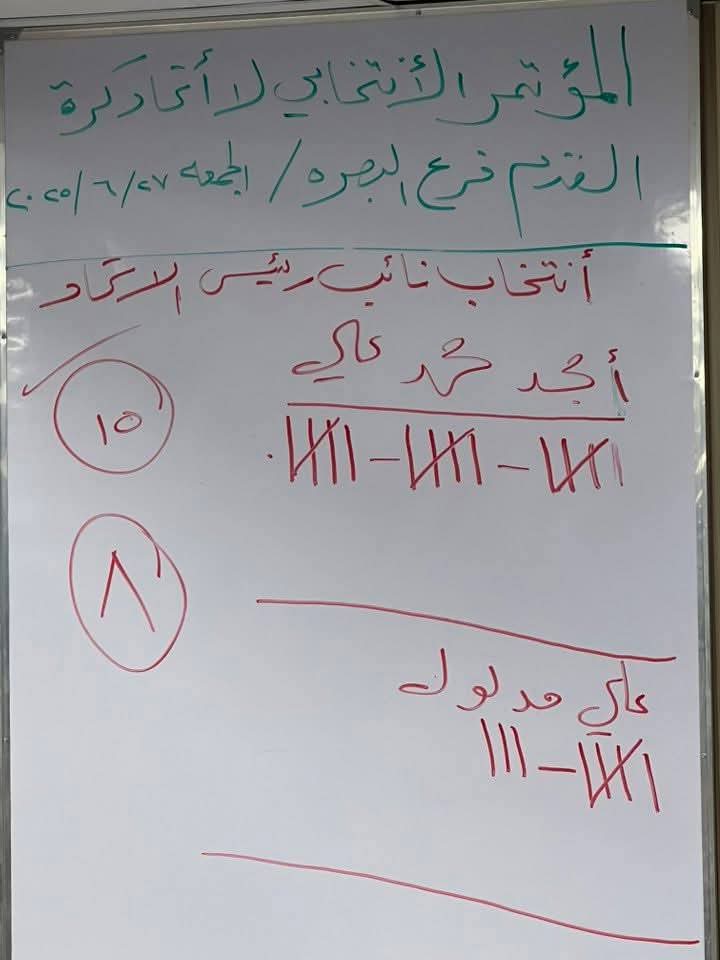 المؤتمر الأنتخابي لا أتحاد كرة
القدم فرع البصره / الجمعه ٢٠٢٥/٦/٢٧
أنتخاب نائب رئيس الاتحاد
أمجد محمد علي
١٥
٨
علي مدلول